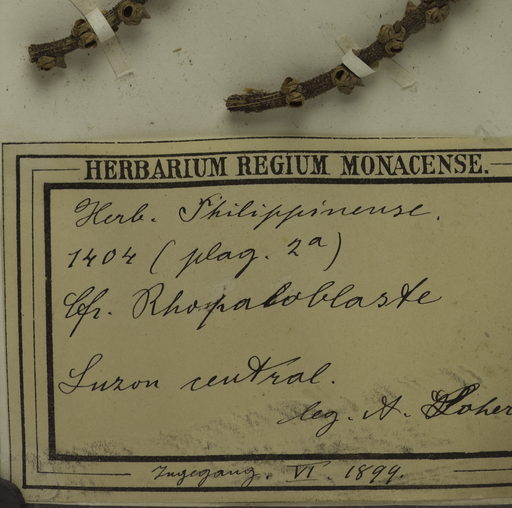 HERBARIUM REGIUM MONACENSE.
Herb. Philippinense.
1404 (plag. 2a)
Cfr. Rhopaloblaste
Luzon central.
leg. A. Loher
Zugegang. VI. 1899.